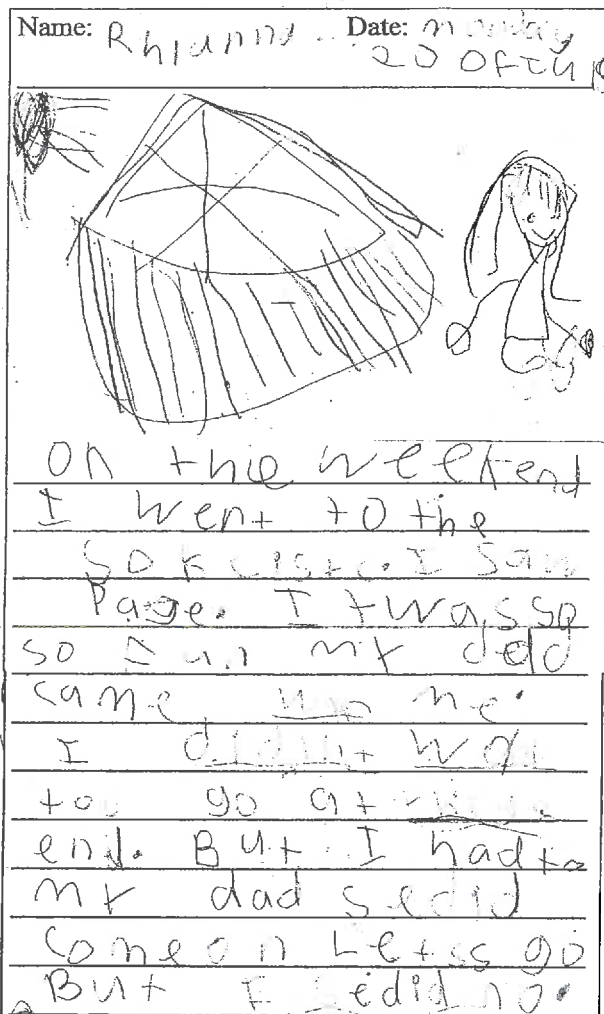 Name: Rhianna Date: Monday
20 OF JU
on the weekend
I went to the
I Saw
Page. I twas so
so Fun my dad
came me.
I didint
too go at
end. But I had to
my dad sedid
come on Letss go
But I sedid no.